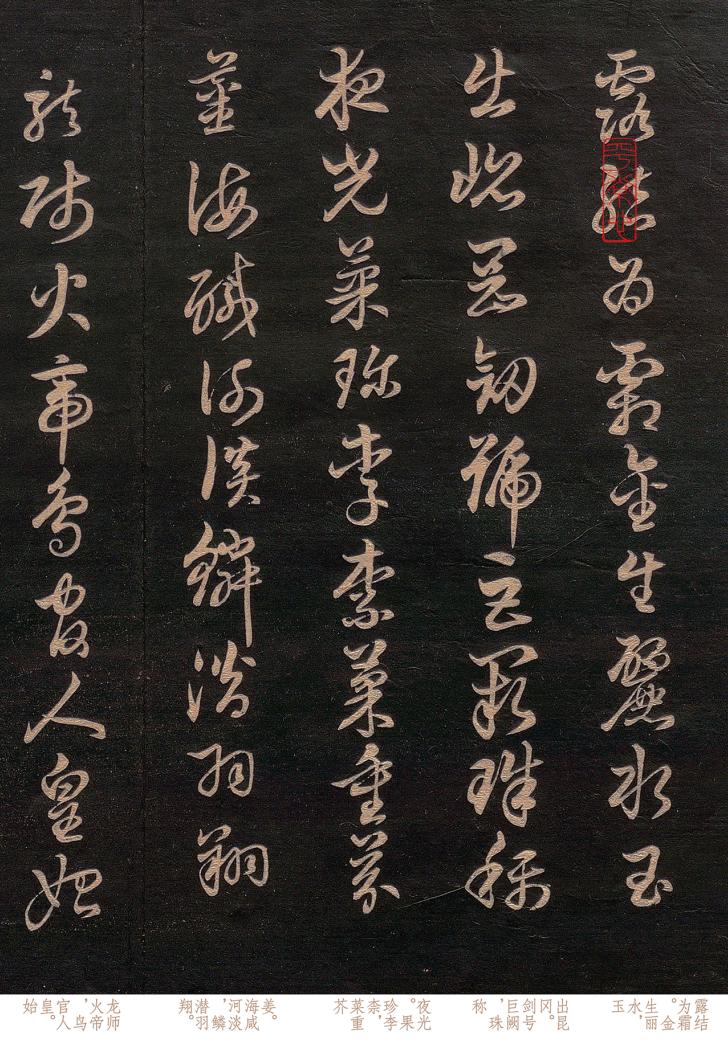 露結為霜金生麗水玉
出崐崗劒號巨闕珠稱
夜光菓珎李柰菜重芥
薑海鹹河淡鱗潛羽翔
龍師火帝鳥官人皇始
露结为霜。金生丽水,玉
出昆冈。剑号巨阙,珠称
夜光。果珍李柰,菜重芥
姜。海咸河淡,鳞潜羽翔。
龙师火帝,鸟官人皇。始